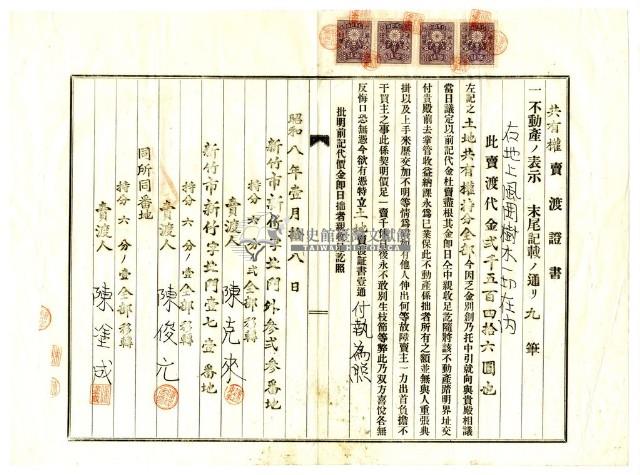 共有權賣渡證書
一不動產ノ表示 末尾記載ノ通リ九筆
右地上風囲樹木一切在內
此賣渡代金貳千五百四拾六圓也
左記之土地共有權持分全部今因乏金別創乃托中引就向與貴殿相議
當日議定以前記代金杜賣盡根其金即日仝中親收足訖隨將該不動產踏明界址交
付貴殿前去掌管收益納課永為已業保此不動產係拙者所有之額並無與人重張典
掛以及上手來歷交加不明等情為 有他人伸出何等故障賣主一力出首負擔不
干買主之事此係契明價足一賣千 日後永不敢別生枝節等弊此乃双方喜悅各無
反悔口恐無憑今欲有憑特立土 賣渡証書壹通付執為照
批明前記代價金即日拙者親收足訖照
昭和八年壹月拾八日
新竹市新竹字北門外參貳參番地
持分六分ノ貳全部移轉
賣渡人 陳克來
新竹市新竹字北門壹七壹番地
持分六分ノ壹全部移轉
賣渡人 陳俊元
同所同番地
持分六分ノ壹全部移轉
賣渡人 陳塗成
臺灣史檔案文獻館